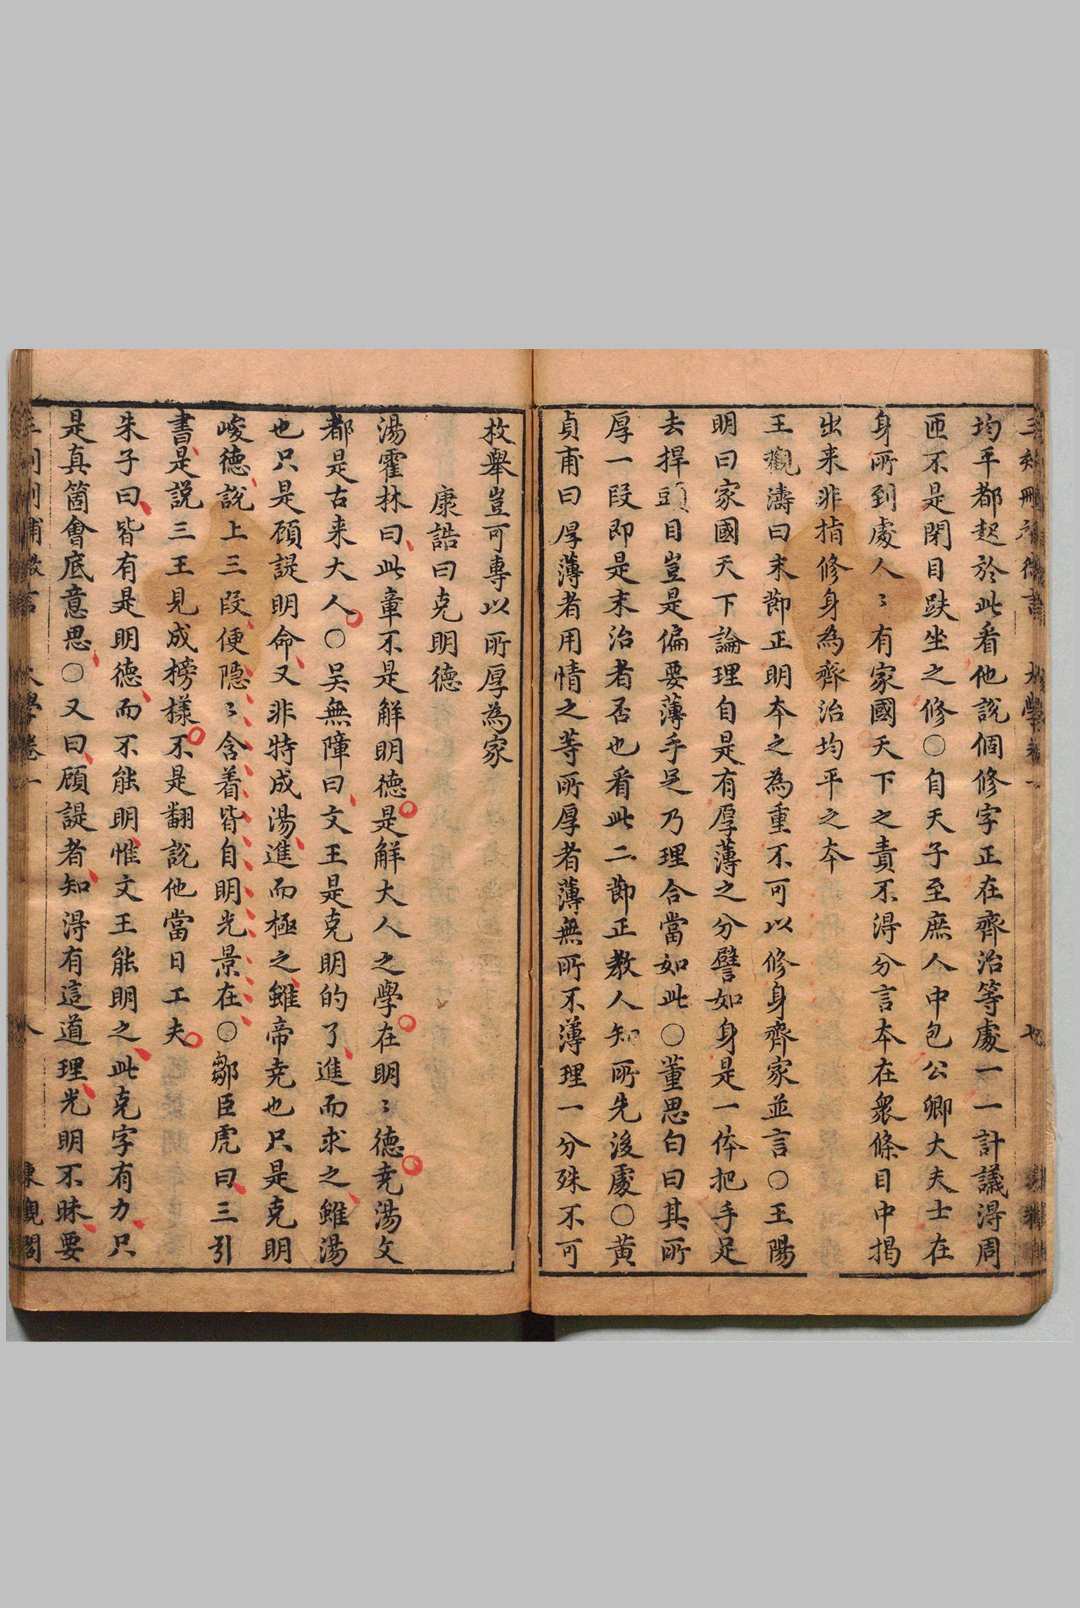 大學卷一
均平都起於此看他說個修字正在齊治等處一一計議得周
匝不是閉目趺坐之修○自天子至庶人中包公卿大夫士在
身所到處人〻有家國天下之責不得分言本在衆條目中揭
出来非指修身為齊治均平之本
王觀濤曰末節正明本之為重不可以修身齊家並言○王陽
明曰家國天下論理自是有厚薄之分譬如身是一体把手足
去捍頭目豈是偏要薄手足乃理合當如此○董思白曰其所
厚一段即是末治者否也看此二節正教人知所先後處○黃
貞甫曰厚薄者用情之等所厚者薄無所不薄理一分殊不可
枚舉豈可專以所厚為家
康誥曰克明德
湯霍林曰此章不是解明德是解大人之學在明〻德堯湯文
都是古来大人○吴無障曰文王是克明的了進而求之雖湯
也只是顧諟明命又非特成湯進而極之雖帝堯也只是克明
峻德說上三段便隱〻含着皆自明光景在○鄒臣虎曰三引
書是説三王見成榜樣不是翻説他當日工夫
朱子曰皆有是明德而不能明惟文王能明之此克字有力只
是真箇會底意思○又曰顧諟者知得有這道理光明不昧要
大學卷一 八 東觀閣